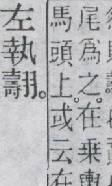 尾為之。在乘
馬頭上。或云在
左執翿。